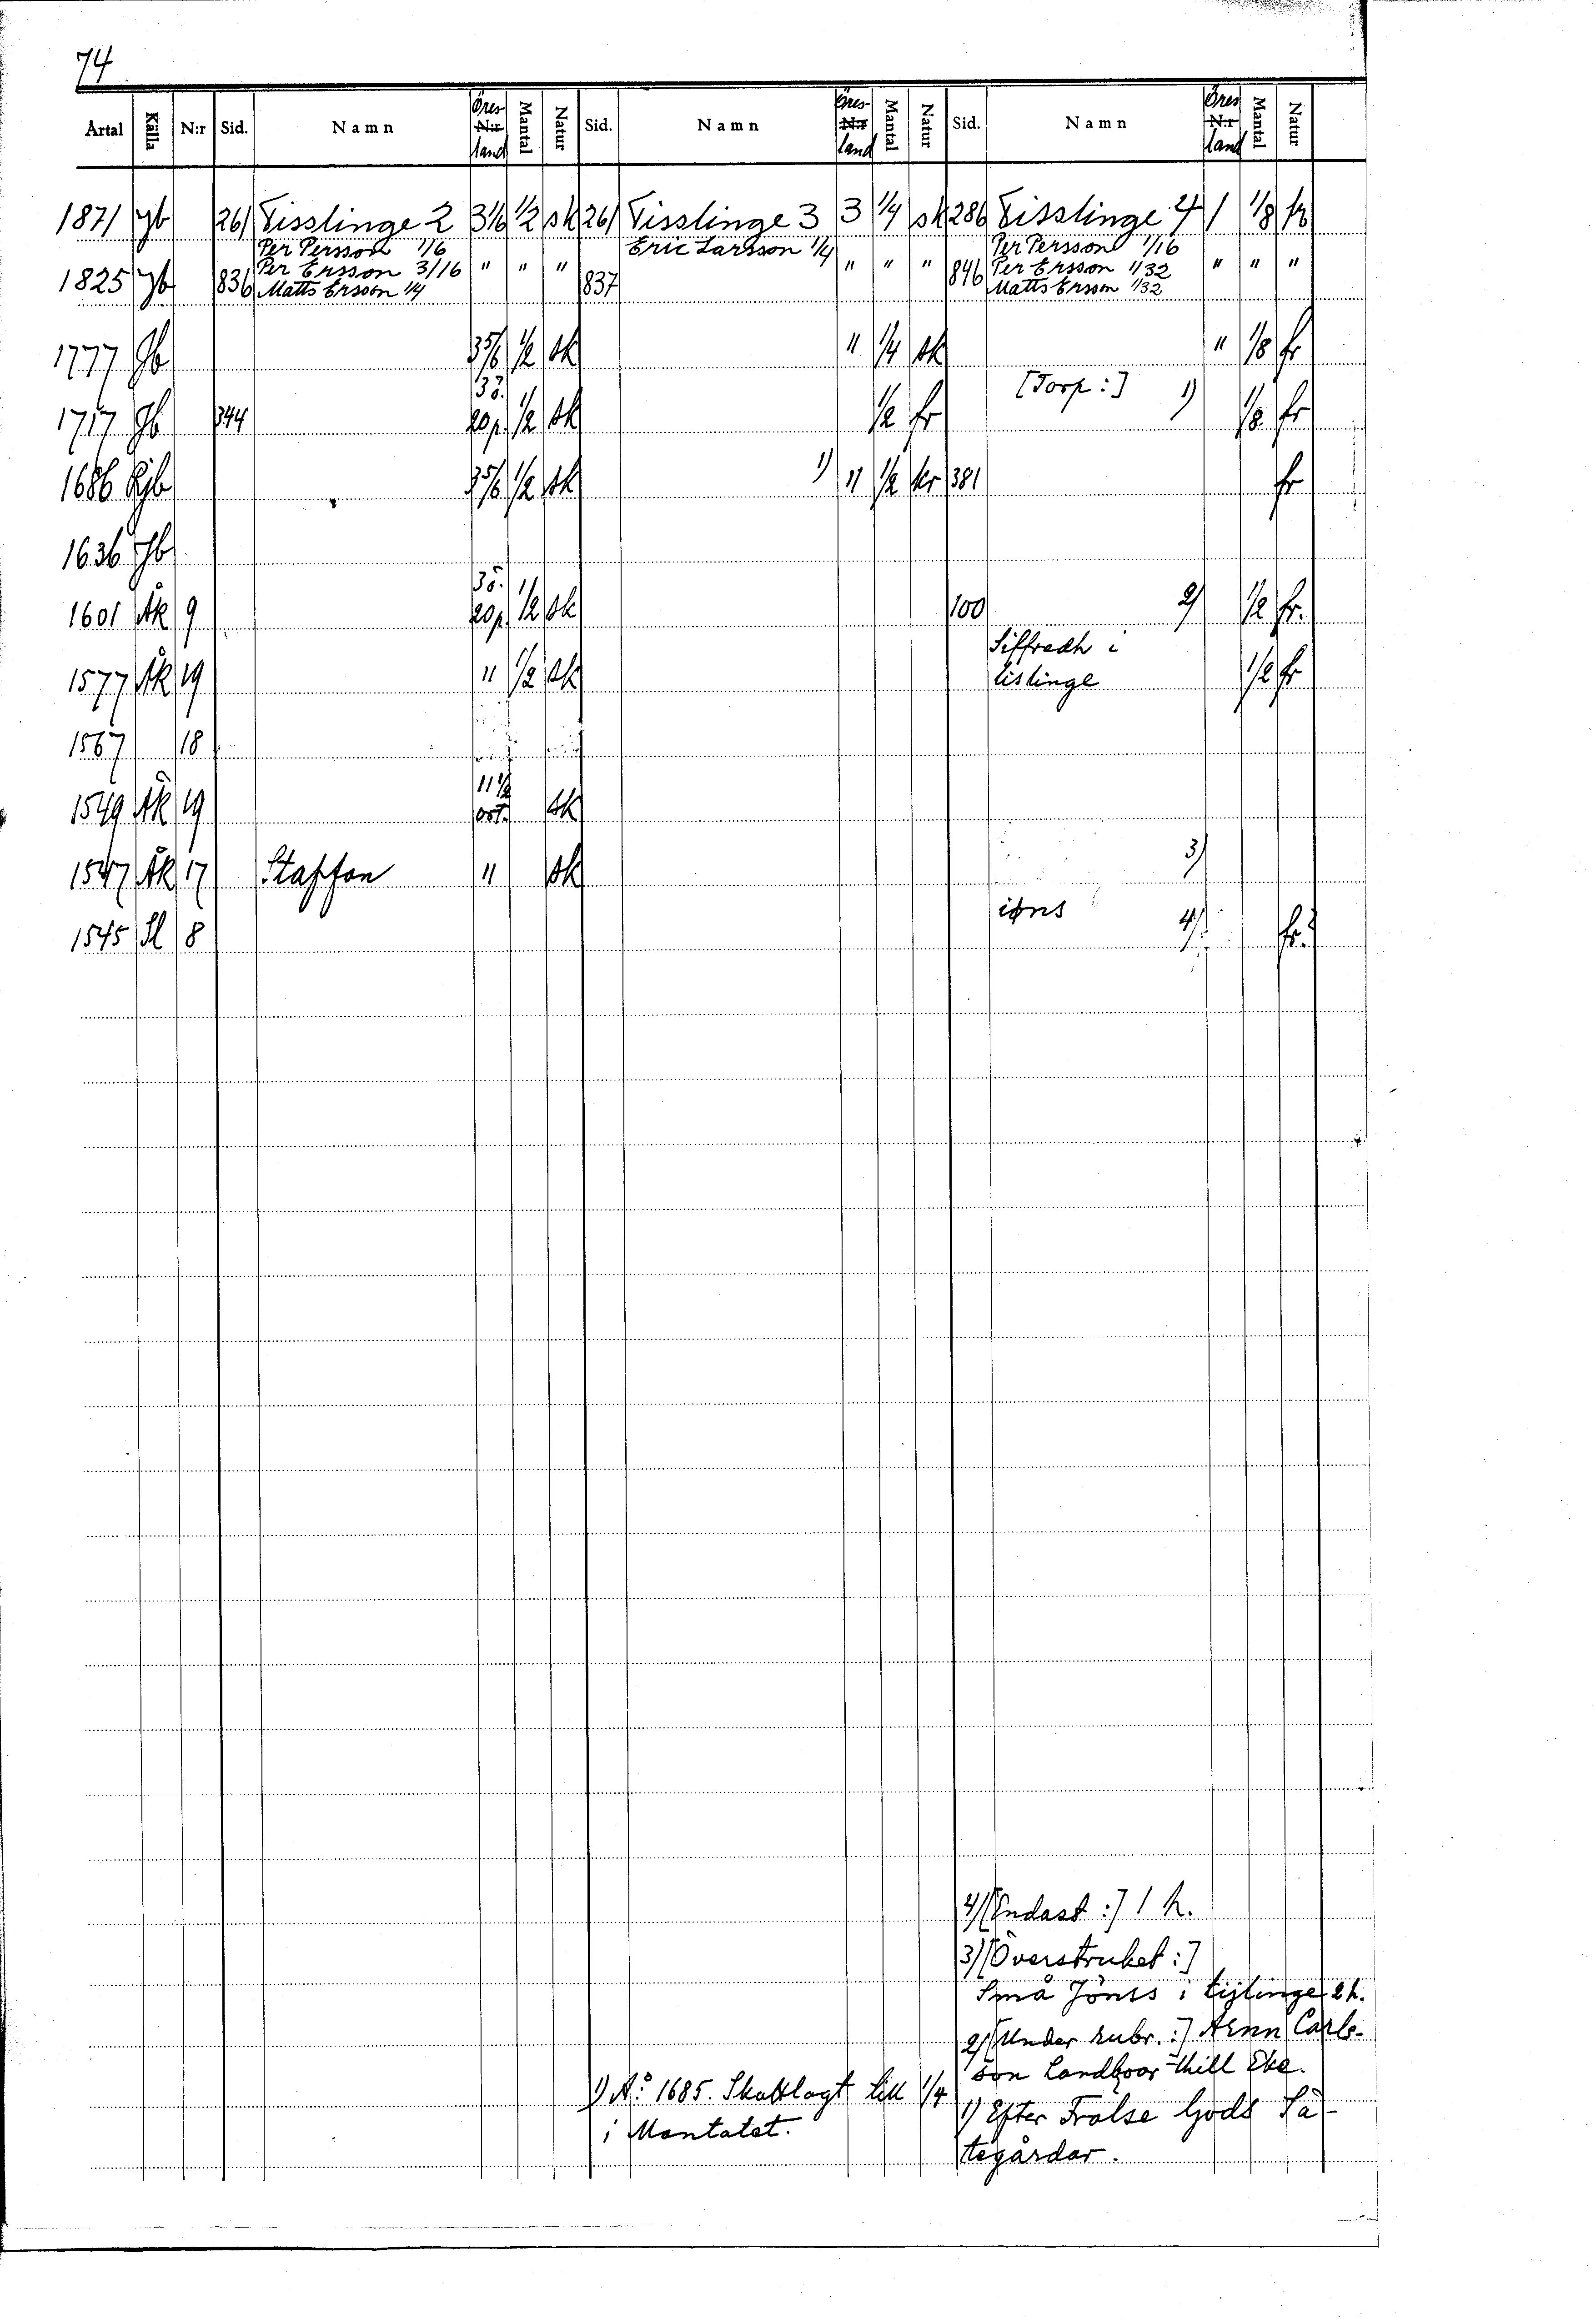 74
Årtal Källa N:r Sid. Namn Öres N:r land Mantal Natur Sid. Namn Öres N:r land Mantal Natur Sid. Namn Öres N:r land Mantal Natur
1871 Jb 261 Tisslinge 2 3 1/6 1/2 sk 261 Tisslinge 3 3 1/4 sk 286 Tisslinge 4 1 1/8 fr
Per Persson 1/6 Eric Larsson 1/4 Per Persson 1/16
Per Ersson 3/16 " " " " " " Per Ersson 1/32 " " "
1825 Jb 836 Matts Ersson 1/4 837 846 Matts Ersson 1/32
1777 Jb 3 5/6 1/2 sk " 1/4 sk " 1/8 fr
3ö. [Torp:] 1)
1717 Jb 344 20p. 1/2 sk 1/2 fr 1/8 fr
1686 Rjb 3 5/6 1/2 sk 1) " 1/2 kr 381 fr
1636 Jb
3ö.
1601 Äk 9 20p. 1/2 sk 100 2) 1/2 fr.
Siffredh i
1577 Äk 19 " 1/2 sk tislinge 1/2 fr
1567 18
11 1/2
1549 Äk 19 ört. sk
1547 Äk 17 Staffan " sk 3)
iöns
1545 Sl 8 4) fr.
4) [Endast:] 1 h.
3) [Överstruket:]
Små Jönss i tijslinge 2 h.
2) [Under rubr.:] Arnn Carls-
son Landboar thill Eke.
1) A:o 1685. Skattlagt till 1/4
i Mantalet.
1) Efter Frälse Gods Sä-
tegårdar.